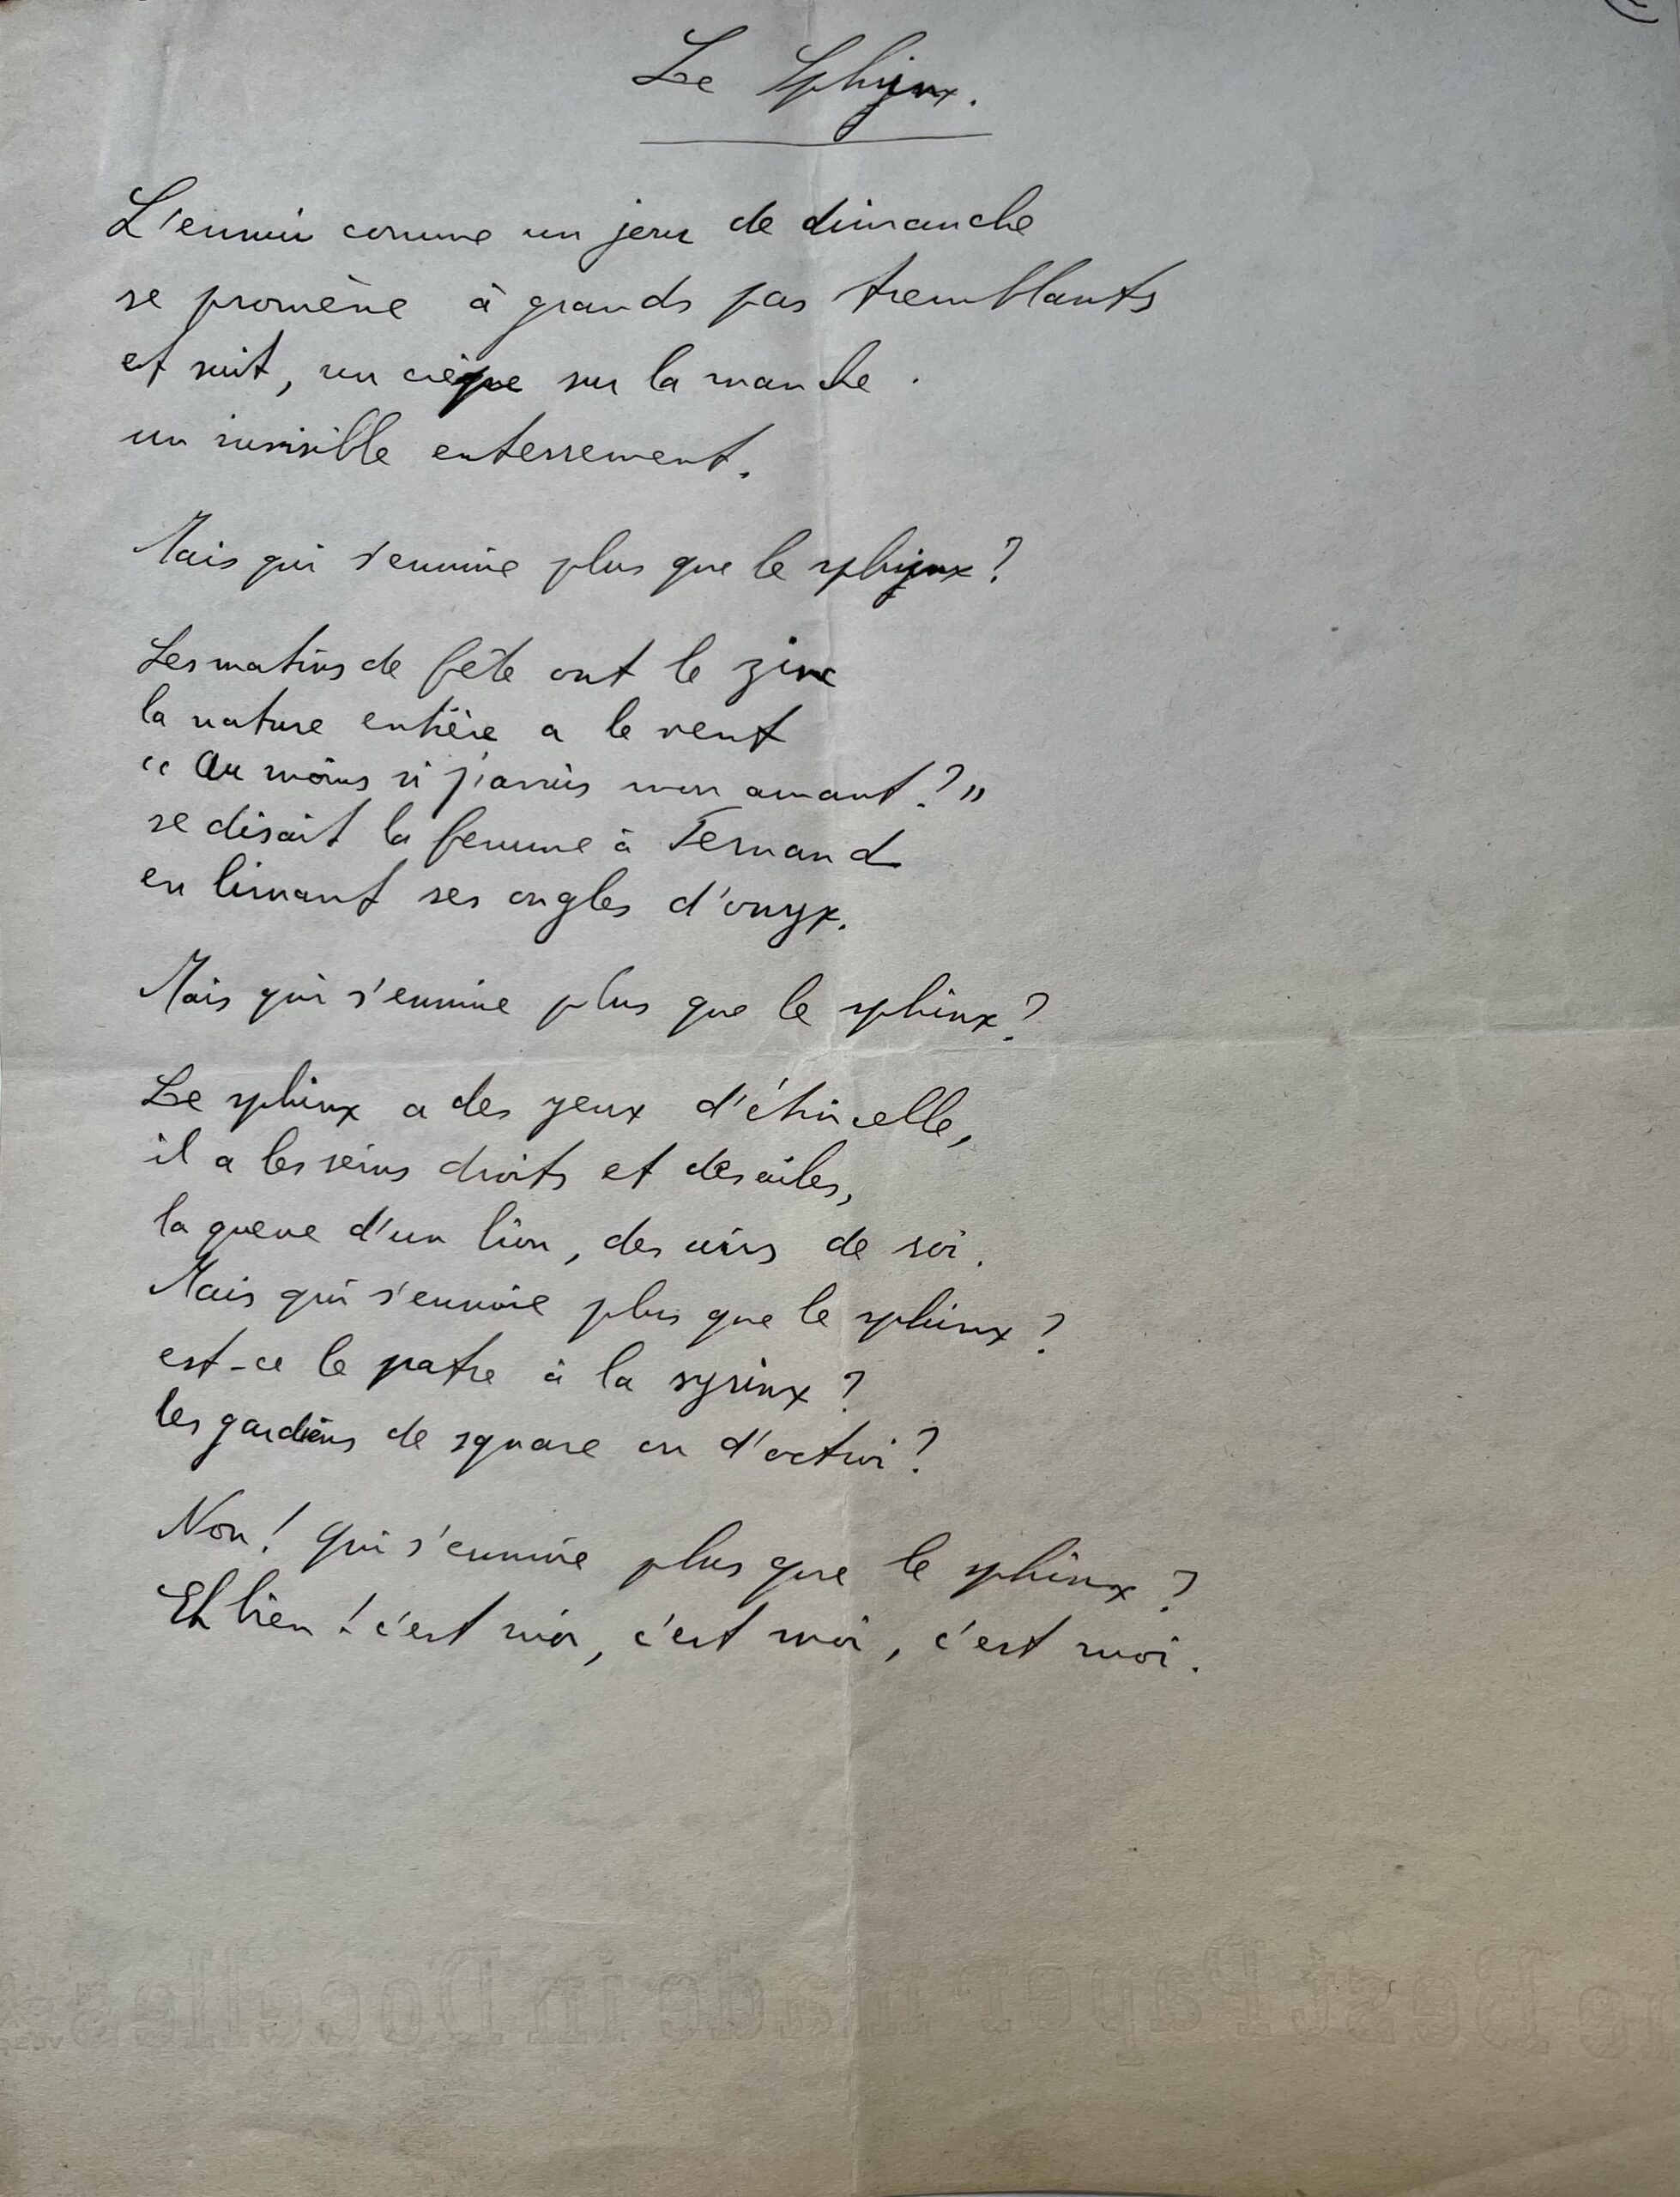 Le Sphynx.
L'ennui comme un jour de dimanche
se promène à grands pas tremblants
et suit, un crèpe sur la manche.
un invisible enterrement.
Mais qui s'ennuie plus que le sphynx?
Les matins de fête ont le zinc
la nature entière a le vent
"Au moins si j'avais mon amant?"
se disait la femme à Fernand
en limant ses ongles d'onyx.
Mais qui s'ennuie plus que le sphinx?
Le sphinx a des yeux d'étincelle,
il a les seins droits et des ailes,
la queue d'un lion, des airs de soi.
Mais qui s'ennuie plus que le sphinx?
est-ce le patre à la syrinx?
les gardiens de square ou d'octroi?
Non! qui s'ennuie plus que le sphinx?
Eh bien! c'est moi, c'est moi, c'est moi.